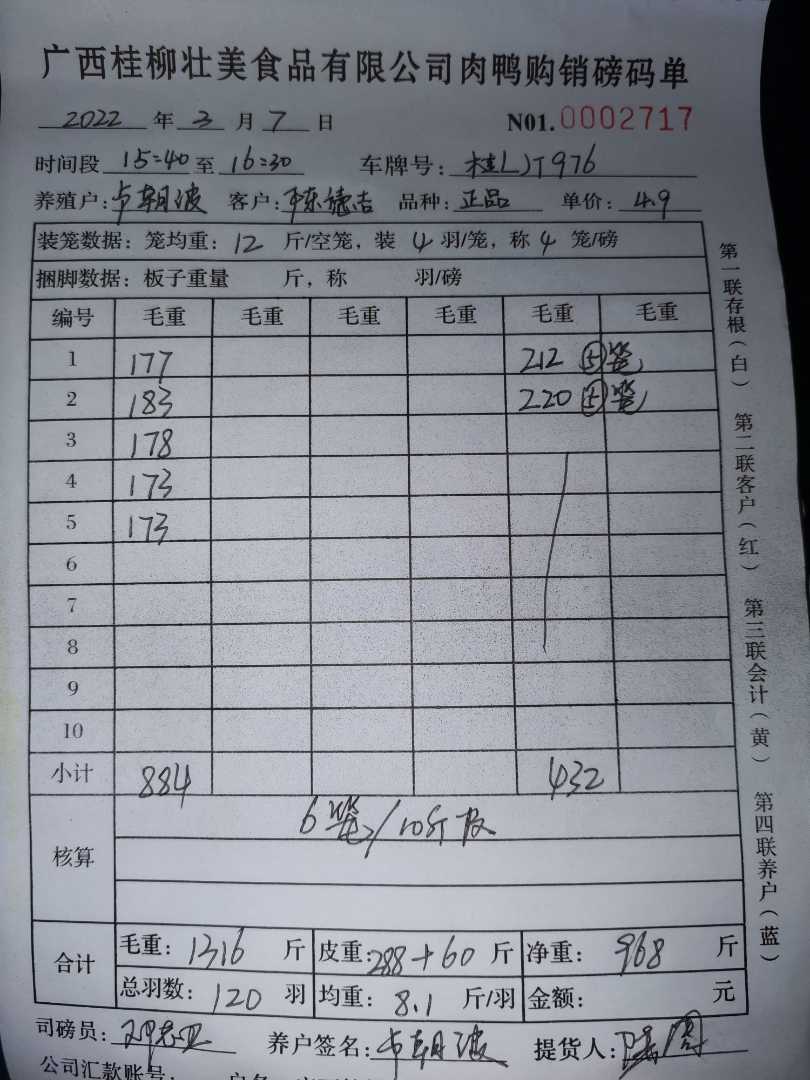 广西桂柳壮美食品有限公司肉鸭购销磅码单
2022 年 3 月 7 日 N01.0002717
时间段 15:40 至 16:30 车牌号: 桂LJT976
养殖户: 朝波 客户: 陈德吉 品种: 正品 单价: 4.9
装笼数据: 笼均重: 12 斤/空笼, 装 4 羽/笼, 称 4 笼/磅
捆脚数据: 板子重量 斤, 称 羽/磅
编号 毛重 毛重 毛重 毛重 毛重 毛重
1 177 212 5笼
2 183 220 5笼
3 178
4 173
5 173
6
7
8
9
10
小计 884 432
核算 6笼/10斤皮
合计 毛重: 1316 斤 皮重: 288+60 斤 净重: 968 斤
总羽数: 120 羽 均重: 8.1 斤/羽 金额: 元
司磅员: 养户签名: 朝波 提货人:
公司汇款账号: 户名:
第一联存根(白) 第二联客户(红) 第三联会计(黄) 第四联养户(蓝)